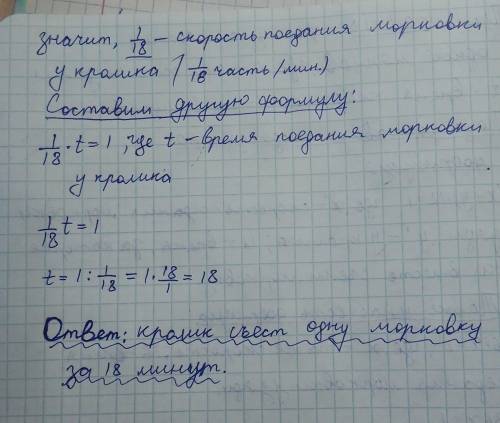 значит, 1/18 – скорость поедания морковки
у кролика (1/18 часть/мин.)
Составим другую формулу:
1/18 · t = 1, где t – время поедания морковки
у кролика
1/18 t = 1
t = 1 : 1/18 = 1 · 18/1 = 18
Ответ: кролик съест одну морковку
за 18 минут.